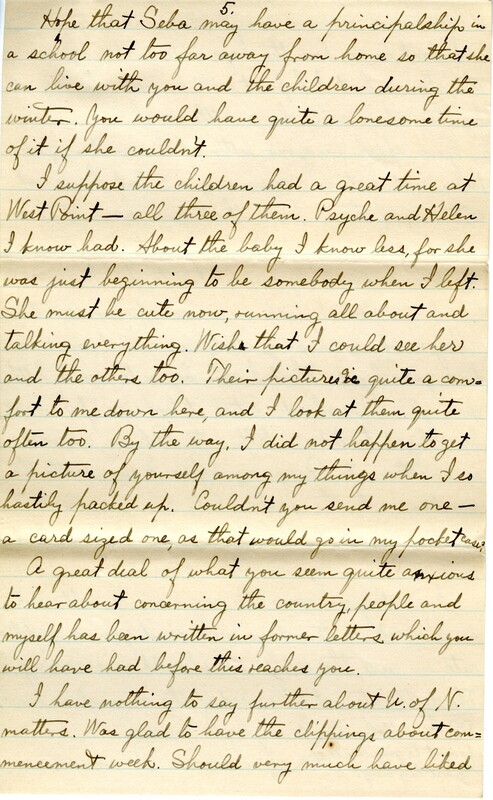 5.
Hope that Seba may have a principalship in
a school not too far away from home so that she
can live with you and the children during the
winter. You would have quite a lonesome time
of it if she couldn't.
I suppose the children had a great time at
West Point — all three of them. Psyche and Helen
I know had. About the baby I know less, for she
was just beginning to be somebody when I left.
She must be cute now, running all about and
talking everything. Wish that I could see her
and the others too. Their pictures are quite a com-
fort to me down here, and I look at them quite
often too. By the way, I did not happen to get
a picture of yourself among my things when I so
hastily packed up. Couldn't you send me one —
a card sized one, as that would go in my pocket case?
A great dial of what you seem quite anxious
to hear about concerning the country, people and
myself has been written in former letters which you
will have had before this reaches you.
I have nothing to say further about U. of N.
matters. Was glad to have the clippings about com-
mencement week. Should very much have liked